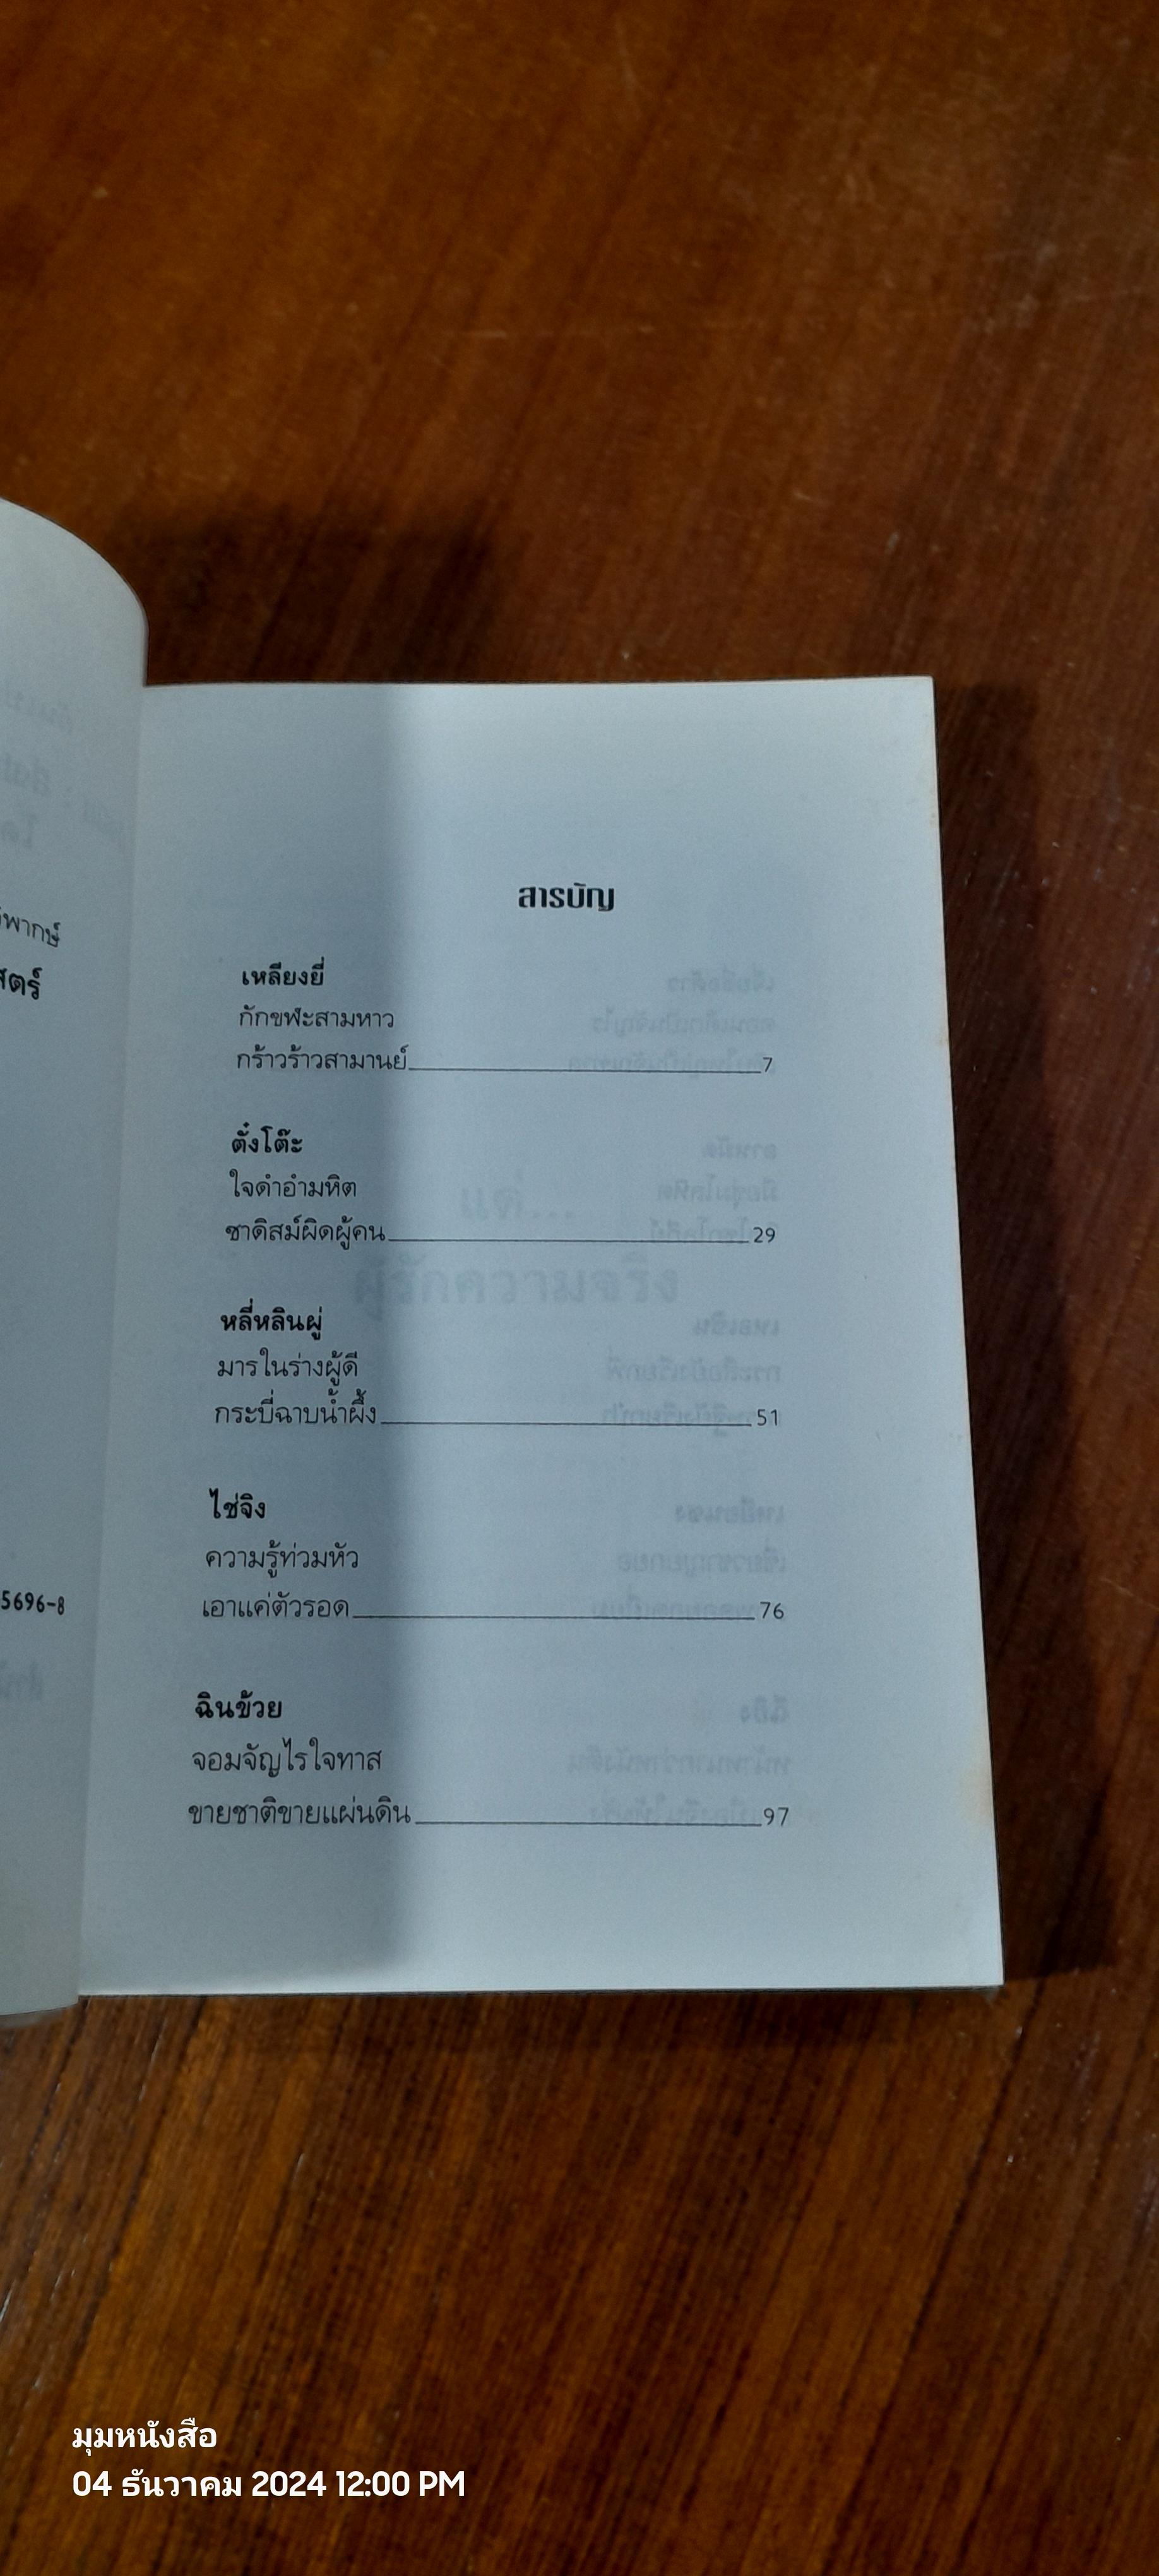 พากษ์
สตร์
5696-8
สารบัญ
เหลียงยี่
กักขฬะสามหาว
กร้าวร้าวสามานย์ 7
ตั๋งโต๊ะ
ใจดำอำมหิต
ซาดิสม์ผิดผู้คน 29
หลี่หลินผู่
มารในร่างผู้ดี
กระบี่ฉาบน้ำผึ้ง 51
ไช่จิง
ความรู้ท่วมหัว
เอาแค่ตัวรอด 76
ฉินข้วย
จอมจัญไรใจทาส
ขายชาติขายแผ่นดิน 97
แด่...
ผู้รักความจริง
มุมหนังสือ
04 ธันวาคม 2024 12:00 PM